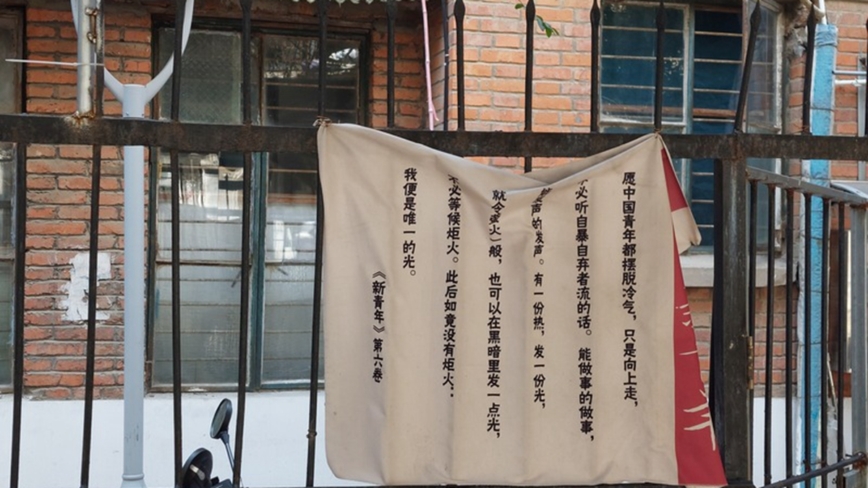 愿中国青年都摆脱冷气，只是向上走，
必听自暴自弃者流的话。能做事的做事，
声的发声。有一份热，发一份光，
就令萤火一般，也可以在黑暗里发一点光，
不必等候炬火。此后如竟没有炬火：
我便是唯一的光。
《新青年》第六卷